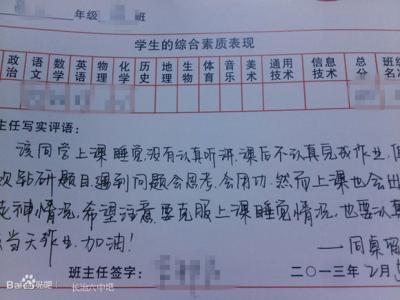 年级 班
学生的综合素质表现
政治 语文 数学 英语 物理 化学 历史 地理 生物 体育 音乐 美术 通用技术 信息技术 总分 班级名
主任写实评语:
该同学上课睡觉,没有认真听讲,课后不认真完成作业,但
欢钻研题目,遇到问题会思考,会用功.然而上课也会出
走神情况,希望注意要克服上课睡觉情况,也要认真
当天作业.加油!
——同桌
班主任签字: 二○一三年 2月
Bai 贴吧 长治六中吧